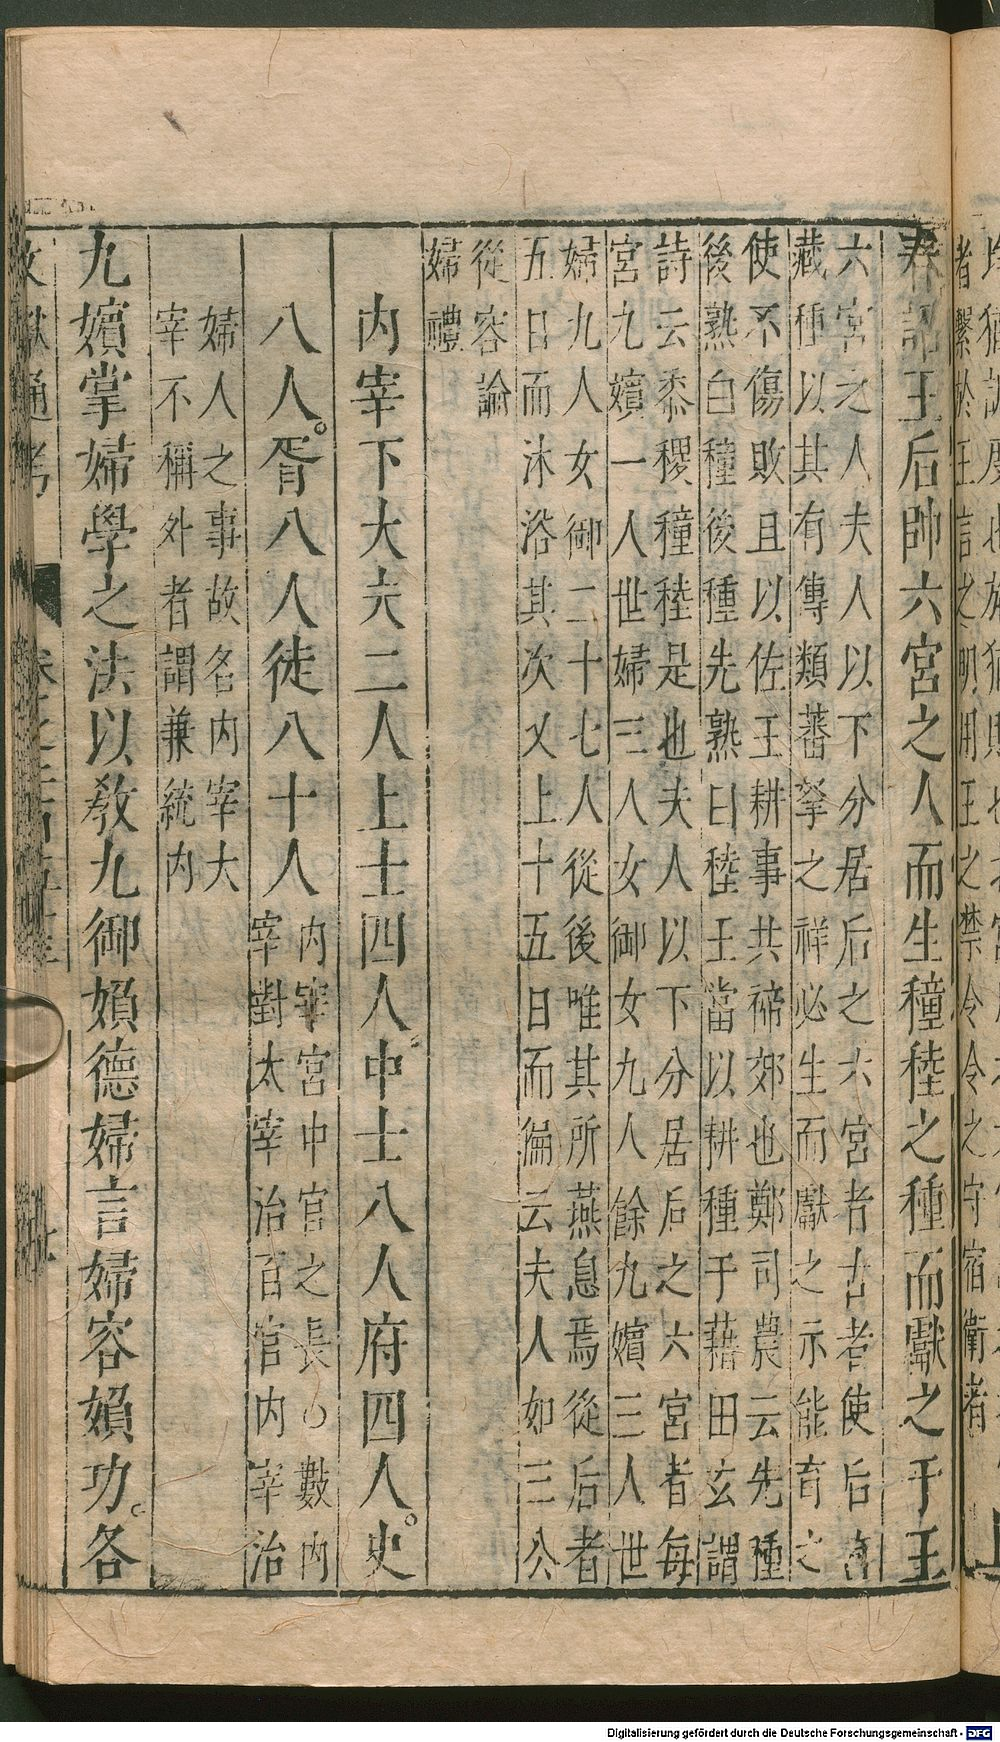 者繫於王言之明用王之禁令令之守宿衛者
春詔王后帥六宮之人而生穜稑之種而獻之于王
六宮之人夫人以下分居后之六宮者古者使后宮
藏種以其有傳類蕃孳之祥必生而獻之示能育之
使不傷敗且以佐王耕事共禘郊也鄭司農云先種
後熟白穜後種先熟曰稑王當以耕種于藉田玄謂
詩云黍稷穜稑是也夫人以下分居后之六宮者每
宮九嬪一人世婦三人女御九人餘九嬪三人世
婦九人女御二十七人從後唯其所燕息焉從后者
五日而沐浴其次又上十五日而徧云夫人如三公
從容論
婦禮
內宰下大夫二人上士四人中士八人府四人史
八人胥八人徒八十人
內宰宮中官之長○數內
宰對太宰治百官內宰治
婦人之事故名內宰大
宰不稱外者謂兼統內
九嬪掌婦學之法以敎九御媍德婦言婦容媍功各
文獻通考
Digitalisierung gefördert durch die Deutsche Forschungsgemeinschaft - DFG